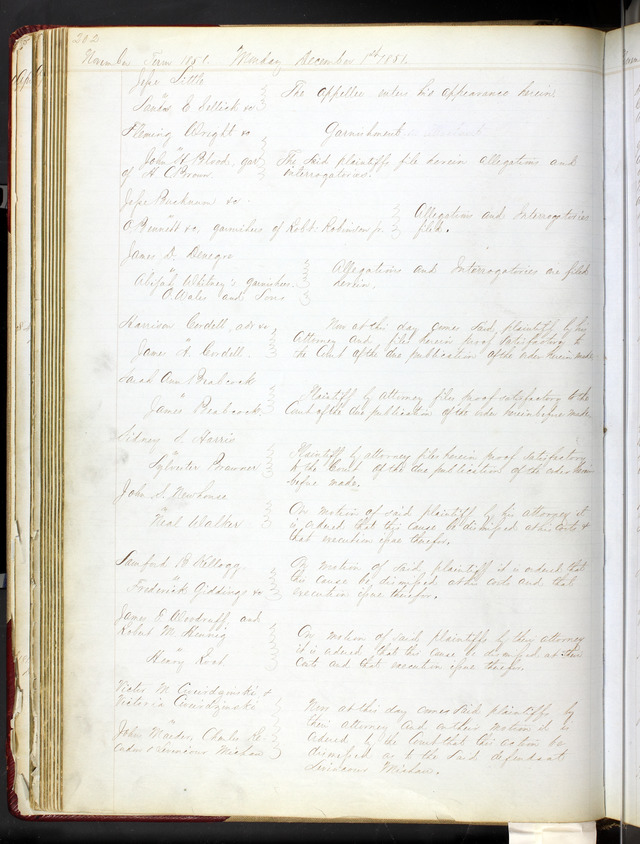 202
November Term 1851. Monday December 1st 1851.
Jesse Little
vs
James E Sellick &c
The appellee enters his appearance herein
Fleming Wright &c
vs
John H. Blood, gar
of H C Brown
Garnishment
The said plaintiffs file herein allegations and
interrogatories.
Jesse Bucknum &c.
vs
A Bennett &c, garnishees of Robt Robinson jr.
Allegations and Interrogatories
filed.
James D. Denegre
vs
Abijah Whitney's garnishees
O. Wales and Sons
Allegations and Interrogatories are filed
herein.
Harrison Cordell, adr &c
vs
Jane H. Cordell.
Now at this day comes said plaintiff by his
Attorney and files herein proof satisfactory to
the Court of the due publication of the order herein made
Sarah Ann Peabcock
vs
James Peabcock
Plaintiff by attorney files proof satisfactory to the
Court of the due publication of the order herein before made
Sidney S. Harris
vs
Sylvester Branner
Plaintiff by attorney files herein proof satisfactory
to the Court of the due publication of the order herein
before made.
John S. Newhouse
vs
Neal Walker
On motion of said plaintiff by his attorney it
is ordered that this cause be dismissed at his costs &
that execution issue therefor.
Sanford R Kellogg.
vs
Frederick Giddings &c
On motion of said plaintiff it is ordered that
this cause be dismissed at his costs and that
execution issue therefor.
James E Woodruff and
Robert M. Henning
vs
Henry Root
On motion of said plaintiffs by their attorney
it is ordered that this cause be dismissed at their
costs and that execution issue therefor.
Victor W.
Victoria
vs
John Warder, Charles
Michau
Now at this day comes said plaintiffs by
their attorney and on their motion it is
ordered by the Court that this action be
dismissed as to the said defendant
Michau.